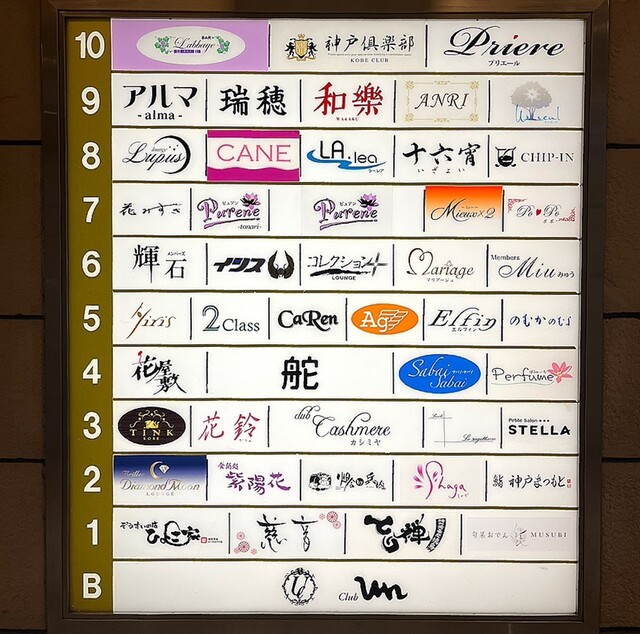 10
BAR L'abbaye
神戸倶楽部
KOBE CLUB
Priere
プリエール
9
アルマ
-alma-
瑞穂
和樂
WARAKU
ANRI
8
lounge
Lupus
CANE
LA.lea
ラ・レア
十六宵
いざよい
CHIP-IN
7
花みずき
ピュアン
Purene
-tonari-
ピュアン
Purene
Mieux×2
Po♥Po
ポポ
6
輝石
メンバーズ
イリス
コレクション+
LOUNGE
Mariage
マリアージュ
Members
Miu みゅう
5
Airis
2 Class
CaRen
Ag
Elfin
エルフィン
のむかのむら
4
花屋敷
舵
Sabai Sabai
Perfume
3
TINK
KOBE
花鈴
club
Cashmere
カシミヤ
Petite Salon
STELLA
2
Belle
Diamond Moon
LOUNGE
会員処
紫陽花
Shaga
鮨 神戸まつもと
1
ぞうすいの店
ひよこ家
慈音
七輝
旬菜おでん
MUSUBI
B
Club Un